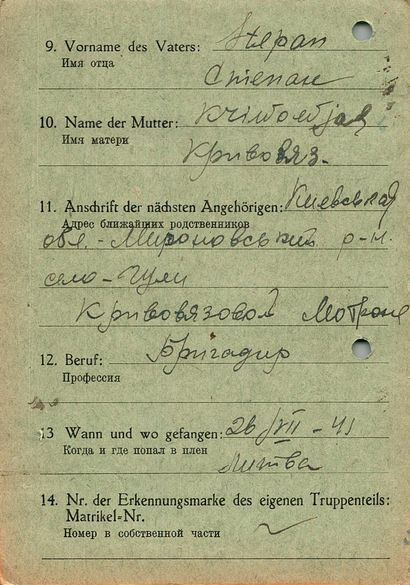 9. Vorname des Vaters: Stepan
Имя отца
Степан
10. Name der Mutter:
Имя матери
Кривовяз.
11. Anschrift der nächsten Angehörigen: Киевская
Адрес ближайших родственников
обл. - Мироновський р-н.
село - Гули
Кривовязовой Мотроне
12. Beruf: Бригадир
Профессия
13 Wann und wo gefangen: 26/VII - 41
Когда и где попал в плен
Литва
14. Nr. der Erkennungsmarke des eigenen Truppenteils:
Matrikel=Nr.
Номер в собственной части